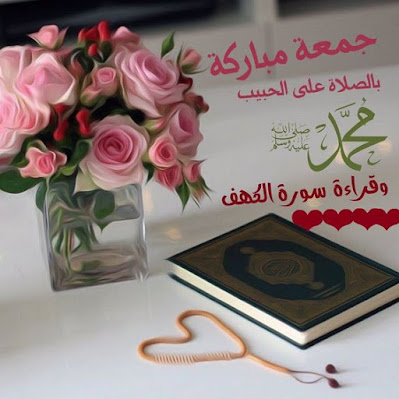 جمعة مباركة
بالصلاة على الحبيب
محمد
صلى الله عليه وسلم
وقراءة سورة الكهف